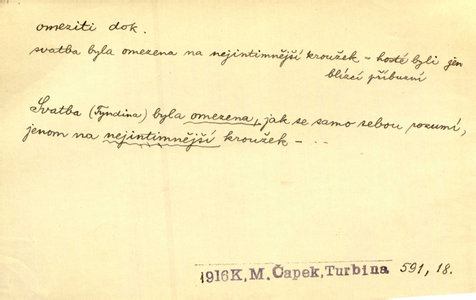 omeziti dok.
svatba byla omezena na nejintimnější kroužek – hosté byli jen
blízcí příbuzní
Svatba (Tyndina) byla omezena, jak se samo sebou rozumí,
jenom na nejintimnější kroužek – . .
1916K, M. Čapek, Turbina 591, 18.